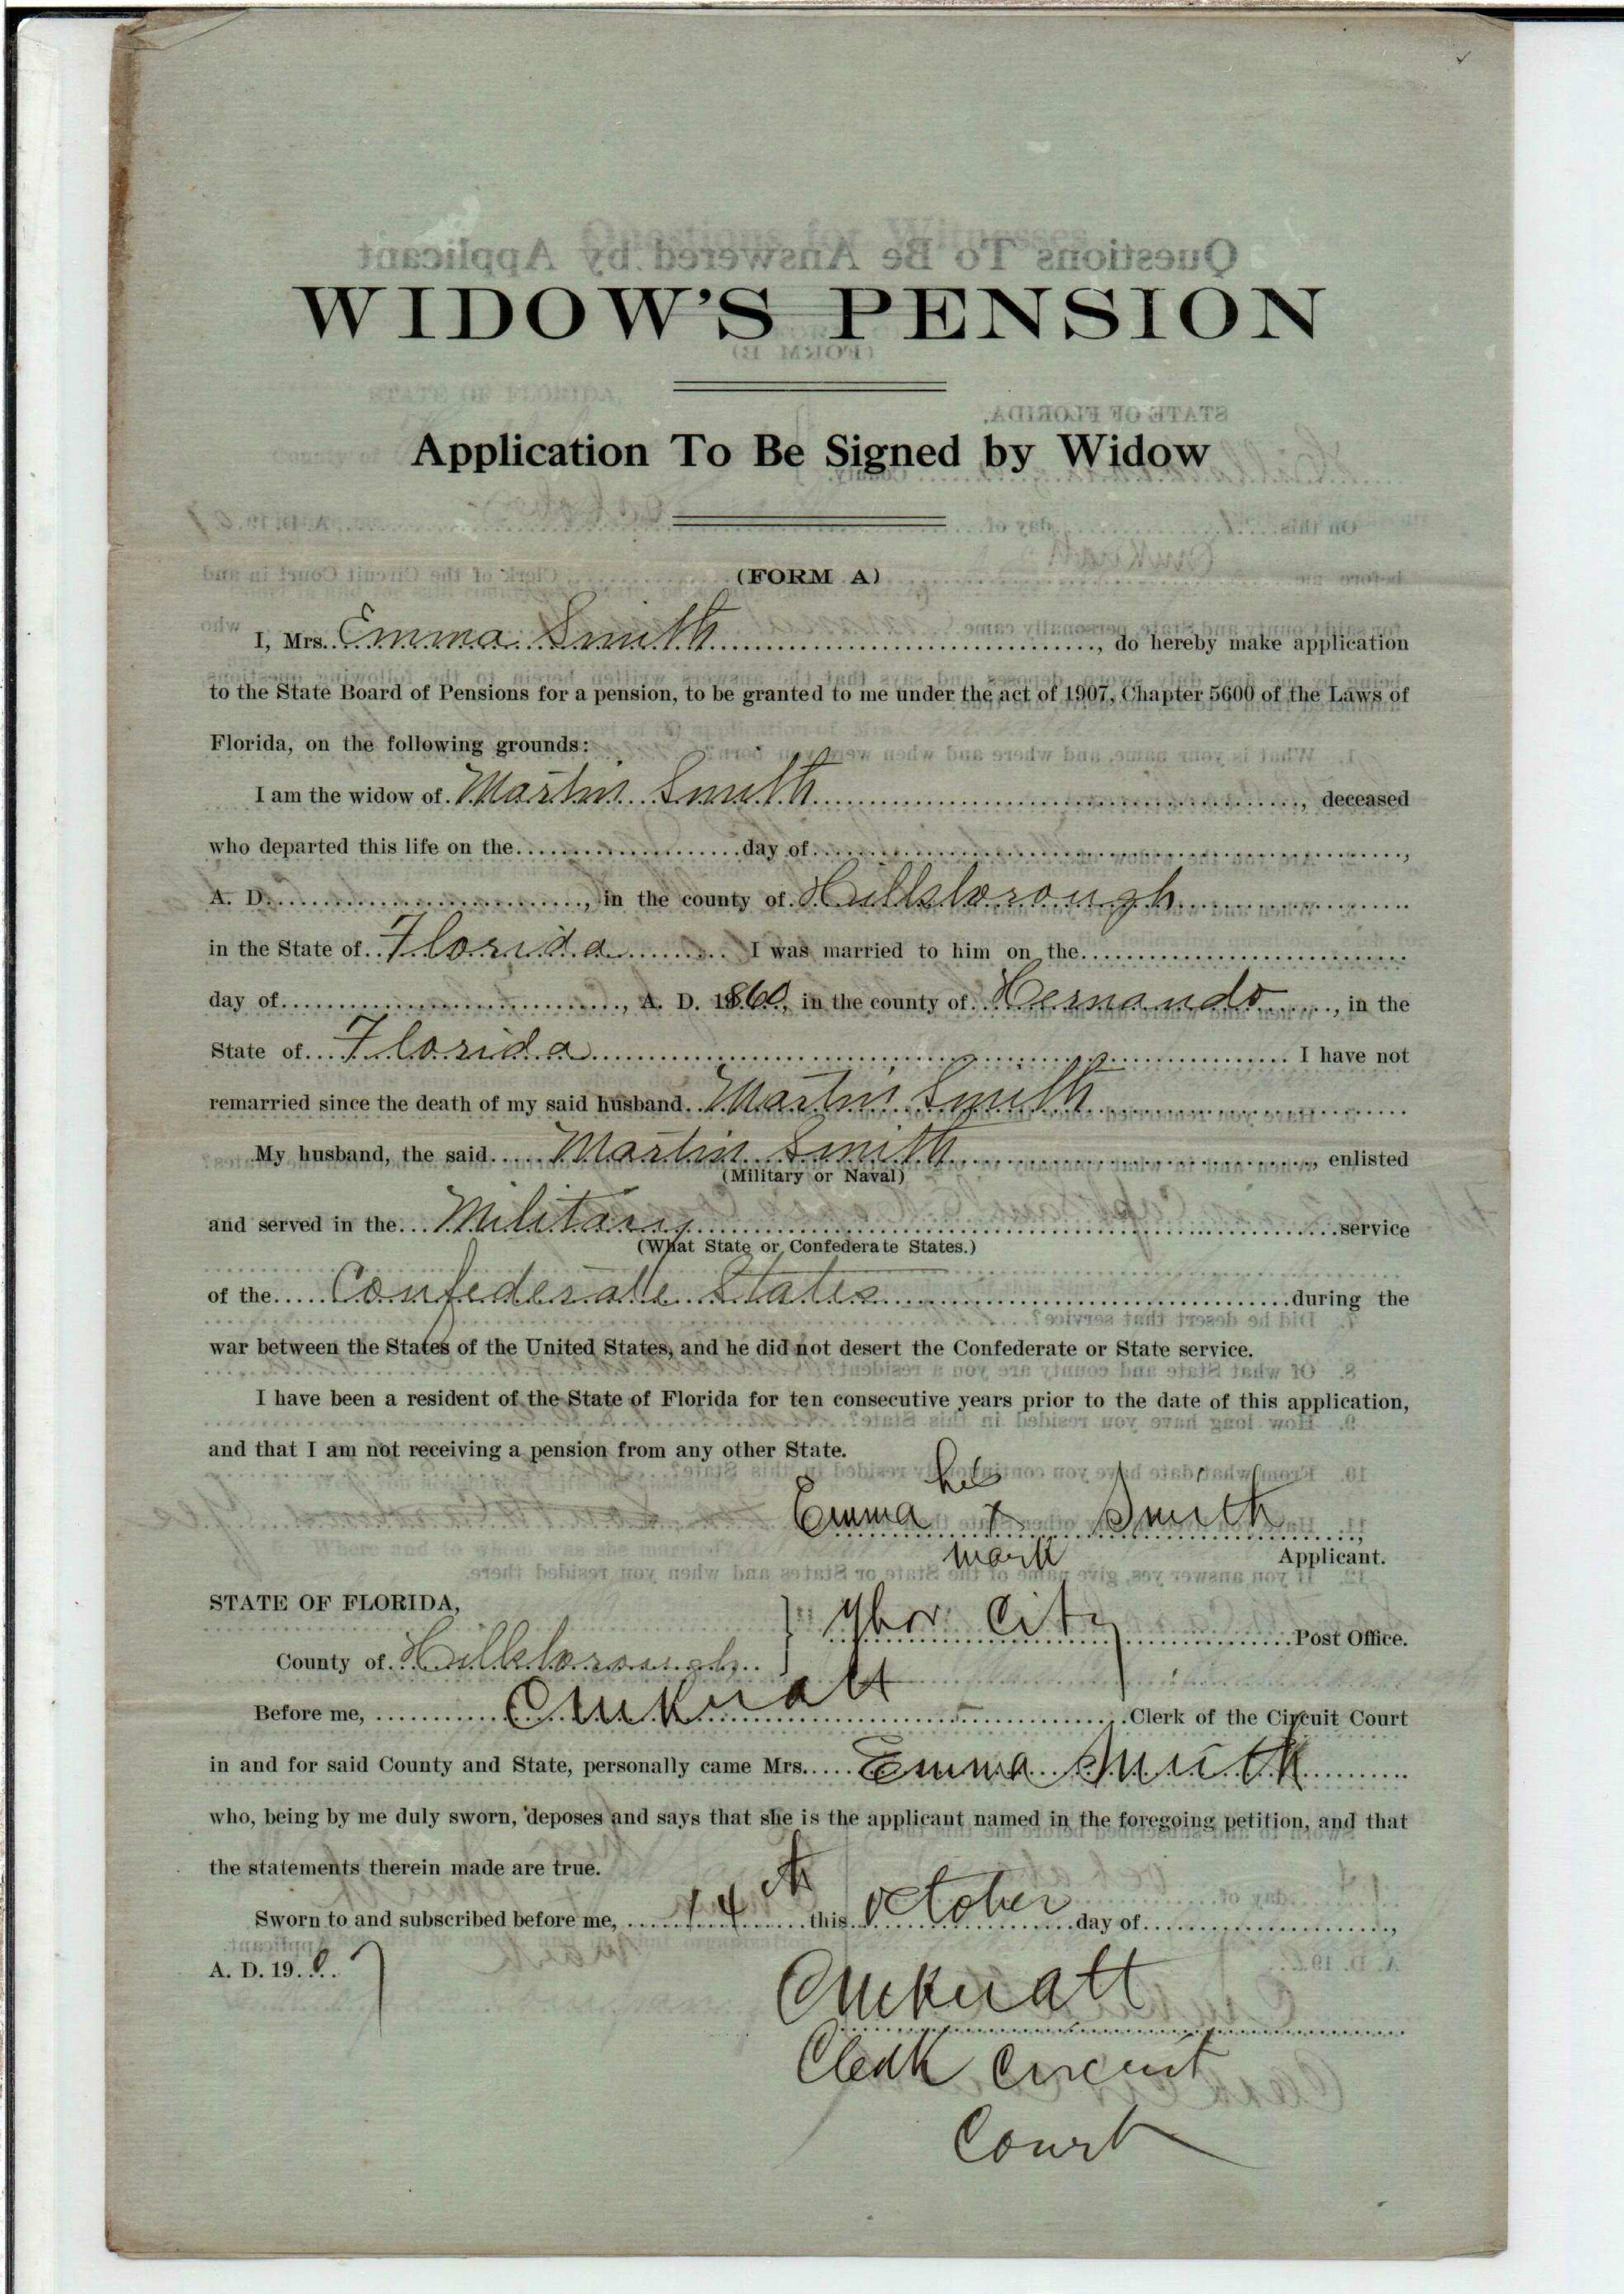 WIDOW'S PENSION
Application To Be Signed by Widow
(FORM A)
I, Mrs. Emma Smith, do hereby make application
to the State Board of Pensions for a pension, to be granted to me under the act of 1907, Chapter 5600 of the Laws of
Florida, on the following grounds:
I am the widow of Martin Smith, deceased
who departed this life on the day of ,
A. D. , in the county of Hillsborough
in the State of Florida I was married to him on the
day of , A. D. 1860, in the county of Hernando, in the
State of Florida I have not
remarried since the death of my said husband Martin Smith
My husband, the said Martin Smith, enlisted
(Military or Naval)
and served in the Military service
(What State or Confederate States.)
of the Confederate States during the
war between the States of the United States, and he did not desert the Confederate or State service.
I have been a resident of the State of Florida for ten consecutive years prior to the date of this application,
and that I am not receiving a pension from any other State.
her
Emma x Smith,
mark Applicant.
STATE OF FLORIDA,
Ybor City Post Office.
County of Hillsborough
Before me, Clerk of the Circuit Court
in and for said County and State, personally came Mrs. Emma Smith
who, being by me duly sworn, deposes and says that she is the applicant named in the foregoing petition, and that
the statements therein made are true.
Sworn to and subscribed before me, 14th this October day of ,
A. D. 1907
Clerk Circuit
Court